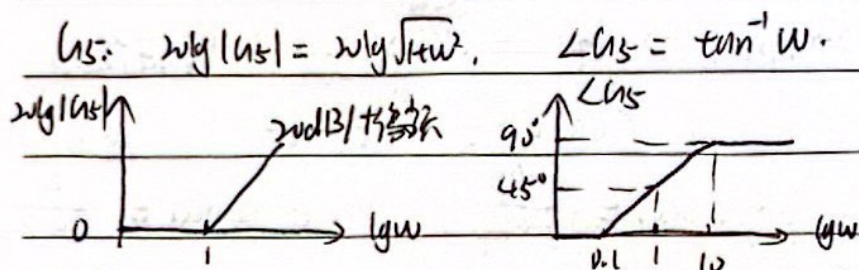 G5: 20lg|G5| = 20lg√1+ω², ∠G5 = tan⁻¹ω.
20lg|G5|
20dB/十倍频
0
1
lgω
∠G5
90°
45°
0.1
1
10
lgω